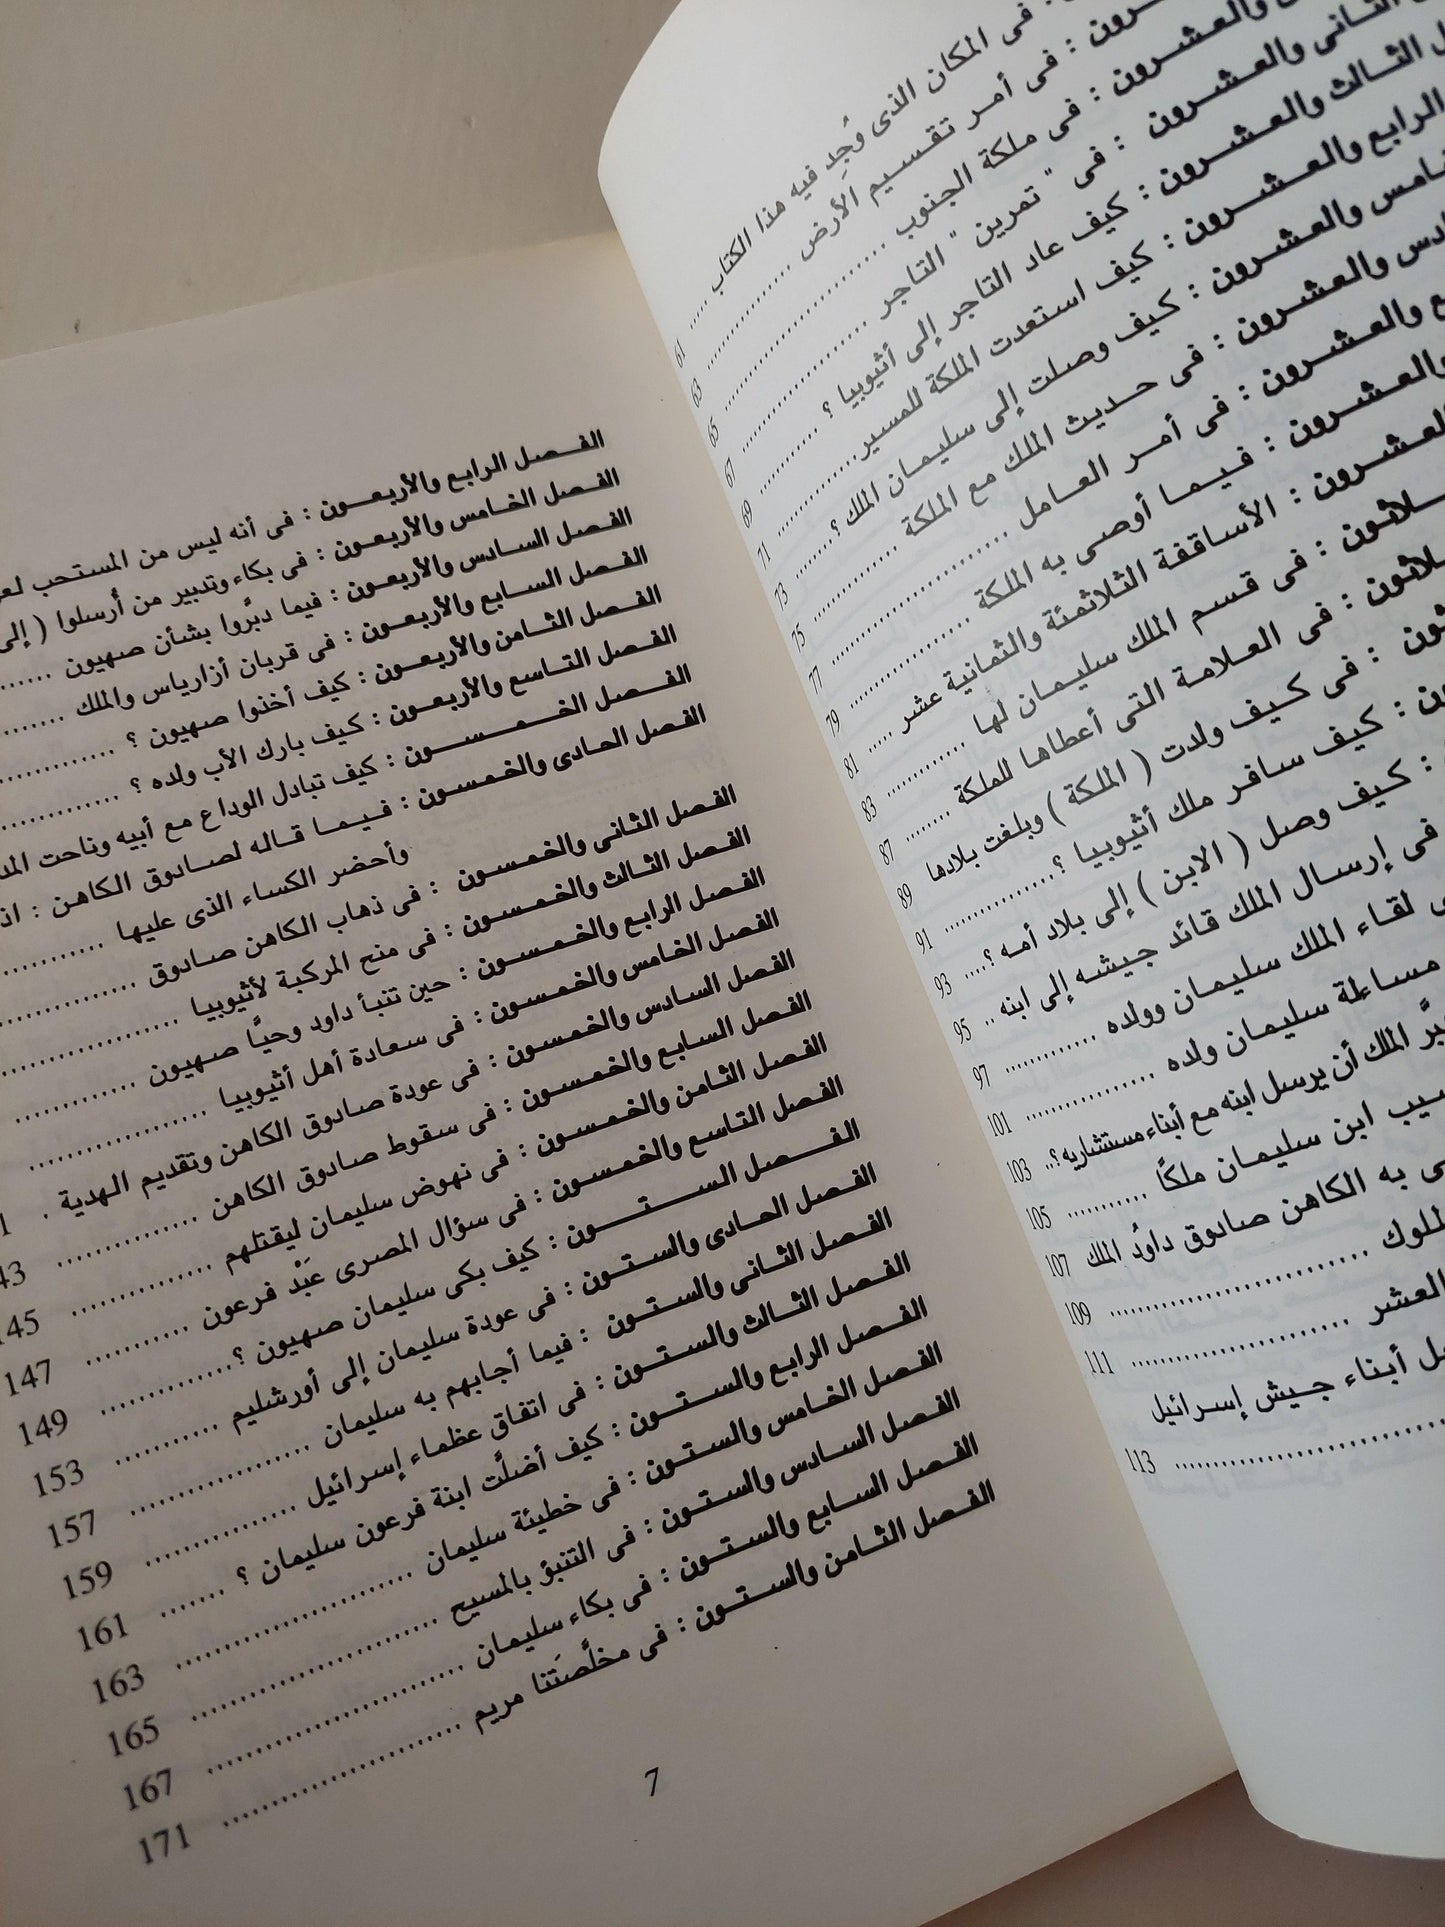 : فى المكان الذى وُجِد فيه هذا الكتاب ..... 61
والعشرون : فى أمر تقسيم الأرض ............... 63
والعشرون : فى ملكة الجنوب ............... 65
الثانى والعشرون : فى " تمرين " التاجر ............... 67
الثالث والعشرون : كيف عاد التاجر إلى أثيوبيا ؟ ............ 69
الرابع والعشرون : كيف استعدت الملكة للمسير ............ 71
والعشرون : كيف وصلت إلى سليمان الملك ؟ ........ 73
والعشرون : فى حديث الملك مع الملكة ............ 75
والعشرون : فى أمر العامل ............... 77
والعشرون : فيما أوصى به الملكة ............... 79
والعشرون : الأساقفة الثلاثمئة والثمانية عشر ..... 81
: فى قسم الملك سليمان لها ............ 83
: فى العلامة التى أعطاها للملكة ........ 87
: فى كيف ولدت ( الملكة ) وبلغت بلادها 89
: كيف سافر ملك أثيوبيا ؟ ............... 91
: كيف وصل ( الابن ) إلى بلاد أمه ؟ ..... 93
فى إرسال الملك قائد جيشه إلى ابنه .. 95
لقاء الملك سليمان وولده ............ 97
مساءلة سليمان ولده ............... 101
الملك أن يرسل ابنه مع أبناء مستشاريه ؟.. 103
ابن سليمان ملكًا ........... 105
به الكاهن صادوق داوُد الملك 107
............... 109
العشر ............... 111
أبناء جيش إسرائيل
............... 113
الفصل الرابع والأربعون : فى أنه ليس من المستحب
الفصل الخامس والأربعون : فى بكاء وتدبير من أُرسلوا ( إلى
الفصل السادس والأربعون : فيما دبَّروا بشأن صهيون ......
الفصل السابع والأربعون : فى قربان أزارياس والملك ........
الفصل الثامن والأربعون : كيف أخذوا صهيون ؟ ............
الفصل التاسع والأربعون : كيف بارك الأب ولده ؟ ............
الفصل الخمسون : كيف تبادل الوداع مع أبيه وناحت
الفصل الحادى والخمسون : فيما قاله لصادوق الكاهن :
وأحضر الكساء الذى عليها ............
الفصل الثانى والخمسون : فى ذهاب الكاهن صادوق ............
الفصل الثالث والخمسون : فى منح المركبة لأثيوبيا ............
الفصل الرابع والخمسون : حين تنبأ داود وحيَّا صهيون ............
الفصل الخامس والخمسون : فى سعادة أهل أثيوبيا ...............
الفصل السادس والخمسون : فى عودة صادوق الكاهن وتقديم الهدية .
الفصل السابع والخمسون : فى سقوط صادوق الكاهن ............ 43
الفصل الثامن والخمسون : فى نهوض سليمان ليقتلهم ............ 145
الفصل التاسع والخمسون : فى سؤال المصرى عَبْد فرعون ......... 147
الفصل الستون : كيف بكى سليمان صهيون ؟ ............ 149
الفصل الحادى والستون : فى عودة سليمان إلى أورشليم ......... 153
الفصل الثانى والستون : فيما أجابهم به سليمان ............... 157
الفصل الثالث والستون : فى اتفاق عظماء إسرائيل ............ 159
الفصل الرابع والستون : كيف أضلَّت ابنة فرعون سليمان ؟ ....... 161
الفصل الخامس والستون : فى خطيئة سليمان ............... 163
الفصل السادس والستون : فى التنبؤ بالمسيح ............... 165
الفصل السابع والستون : فى بكاء سليمان ............... 167
الفصل الثامن والستون : فى مخلَّصَتنا مريم ............... 171
7